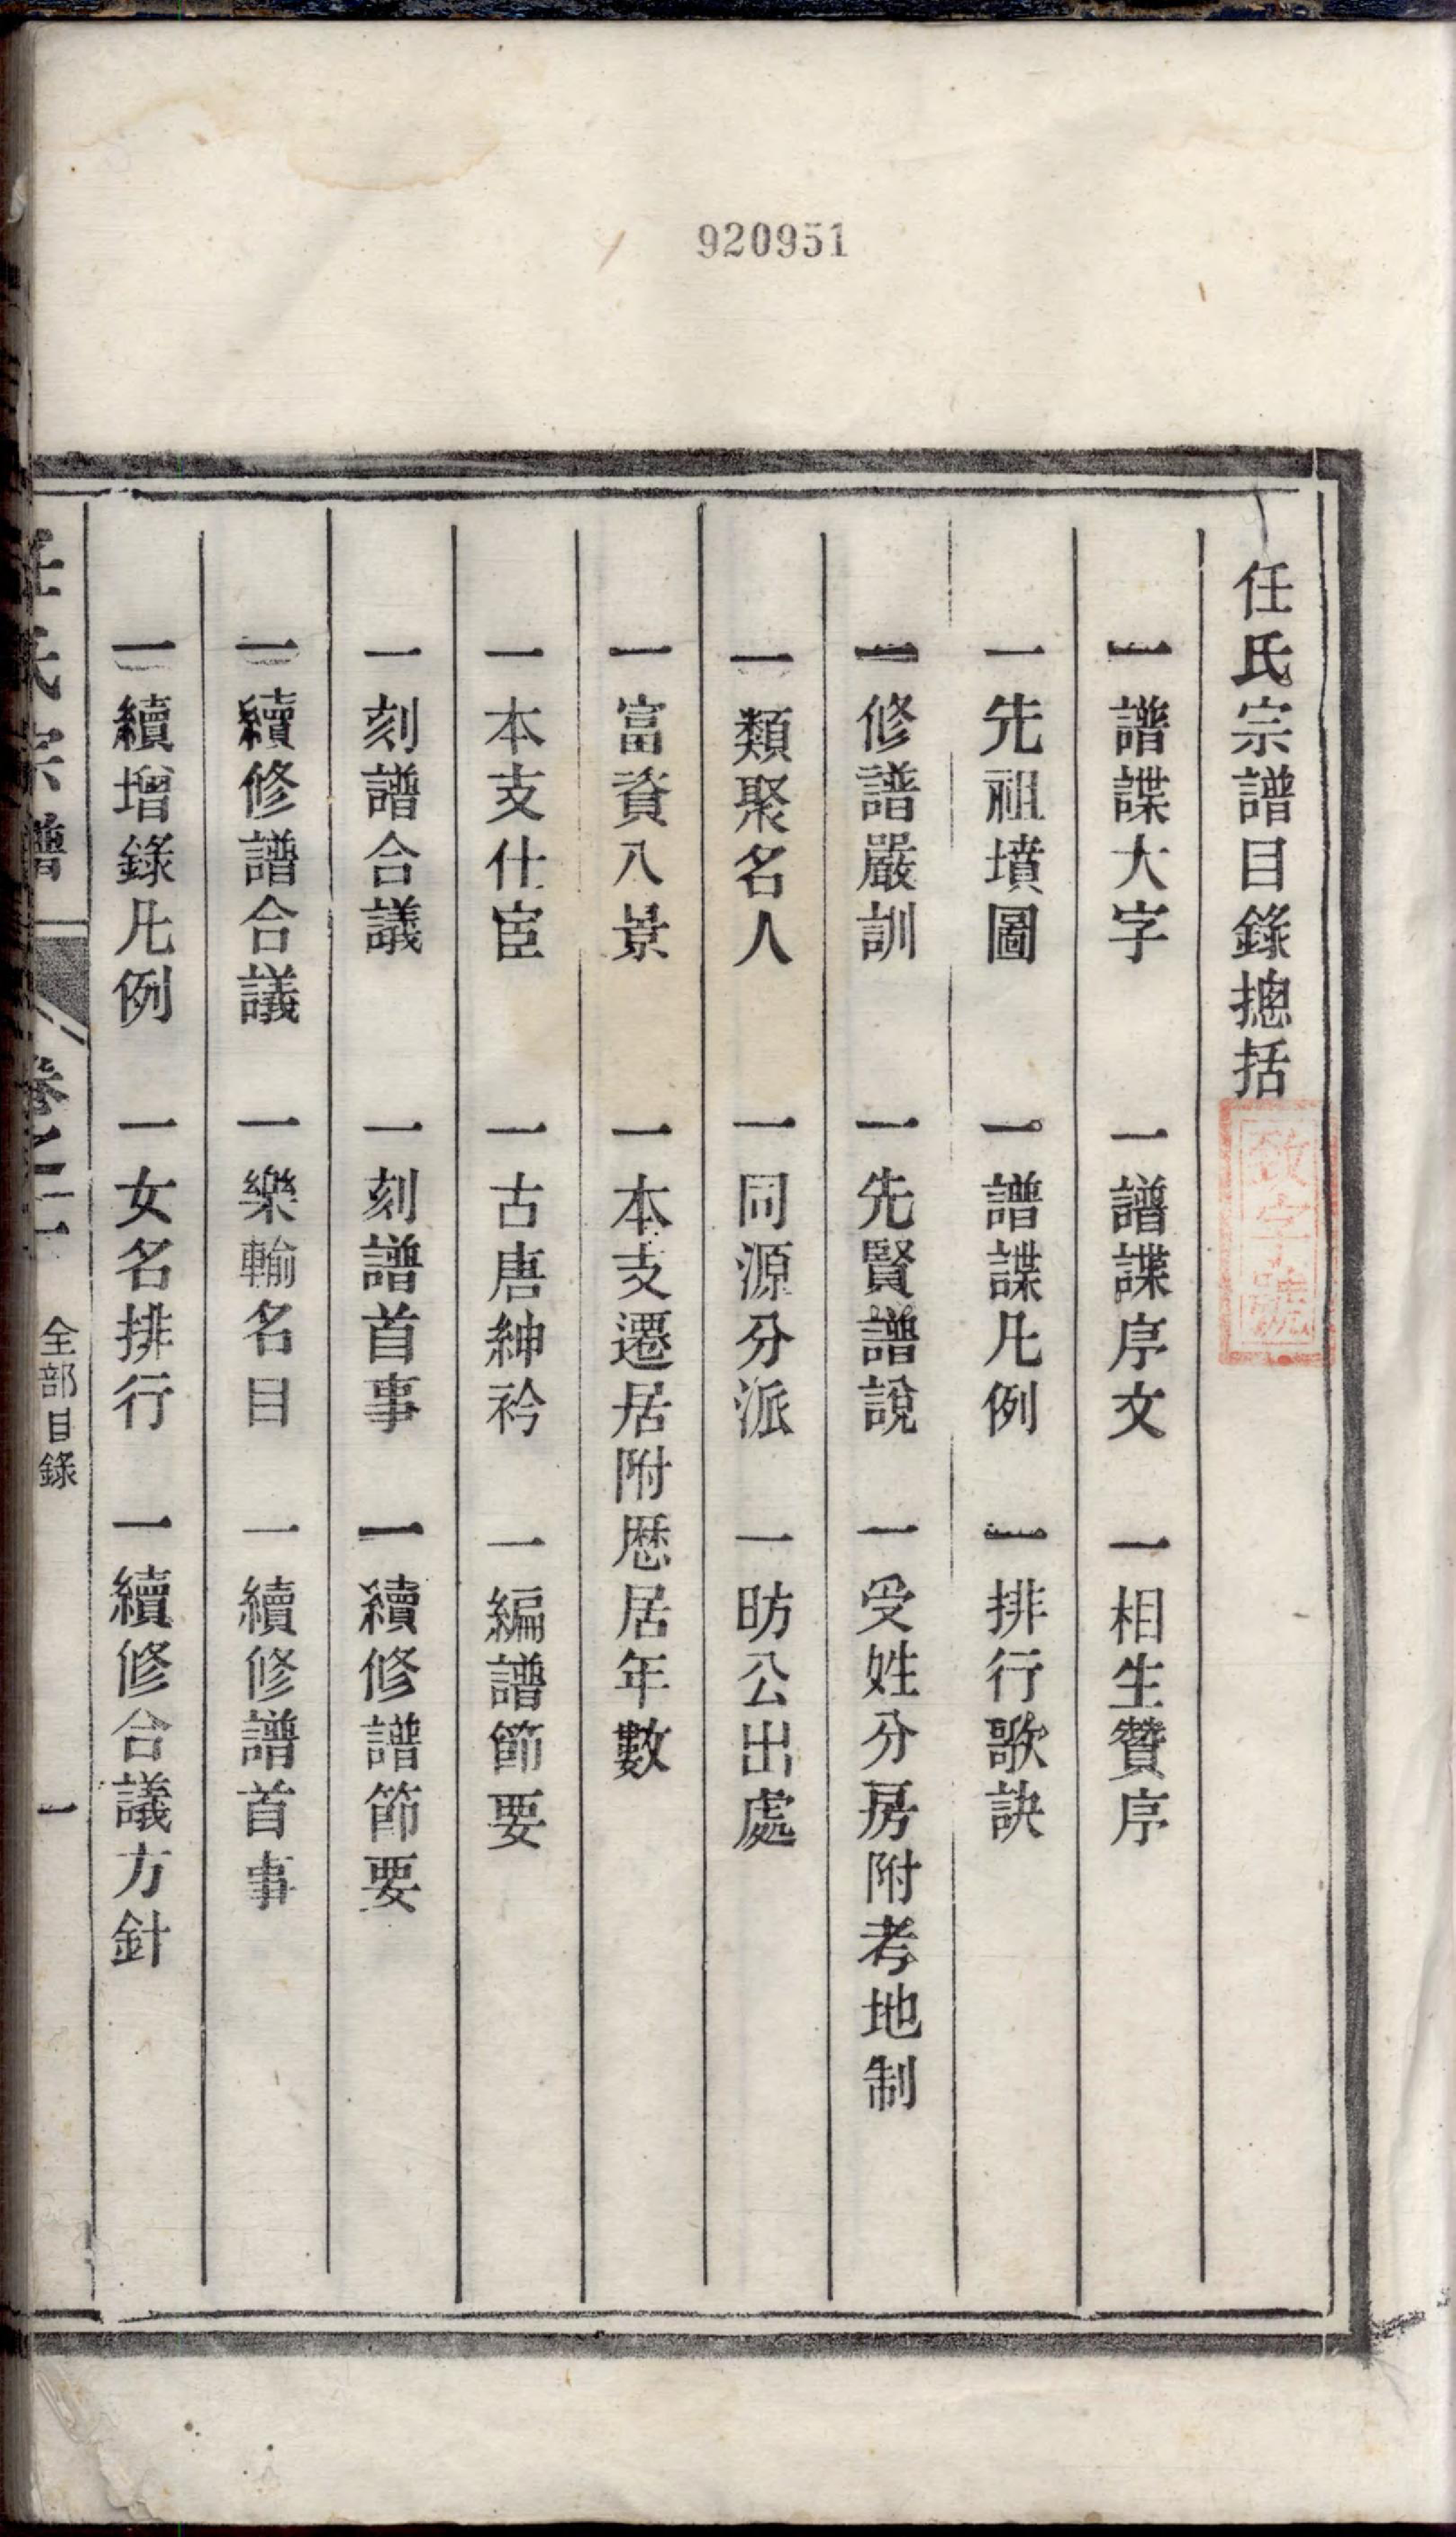 920951
任氏宗譜目錄摠括
一譜諜大字 一譜諜序文 一相生贊序
一先祖墳圖 一譜諜凡例 一排行歌訣
一修譜嚴訓 一先賢譜說 一受姓分房附考地制
一類聚名人 一同源分派 一昉公出處
一富資八景 一本支遷居附歷居年數
一本支仕宦 一古唐紳衿 一編譜節要
一刻譜合議 一刻譜首事 一續修譜節要
一續修譜合議 一樂輸名目 一續修譜首事
一續增錄凡例 一女名排行 一續修合議方針
任氏宗譜 卷之一 全部目錄 一